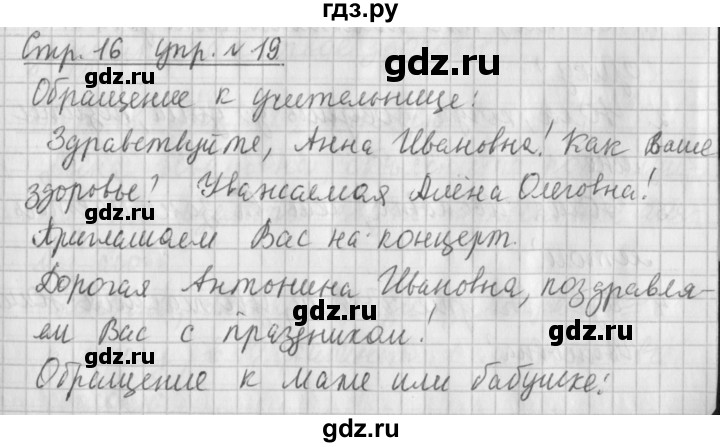 гдз.ру
Стр. 16 упр. № 19
gdz.ru gdz.ru
Обращение к учительнице:
Здравствуйте, Анна Ивановна! Как Ваше
здоровье? Уважаемая Алёна Олеговна!
gdz.ru gdz.ru
Приглашаем Вас на концерт.
Дорогая Антонина Ивановна, поздравля-
gdz.ru gdz.ru
ем Вас с праздником!
gdz.ru gdz.ru
Обращение к маме или бабушке:
gdz.ru